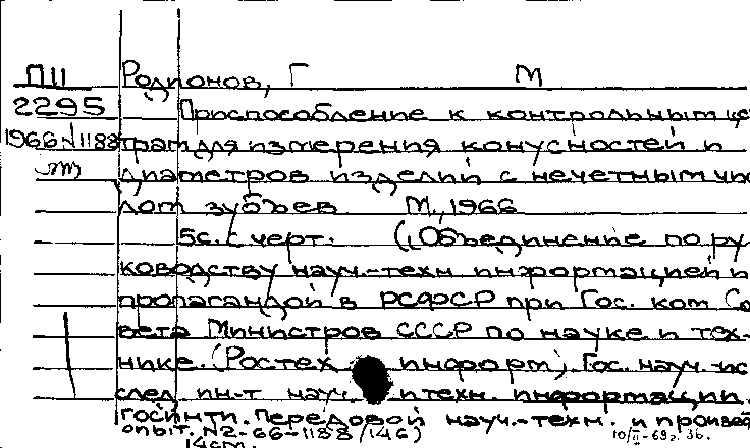 П11
2295
1966 №1188
Родионов, Г М
Приспособление к контрольным це
трам для измерения конусностей и
диаметров изделий с нечетным чис
лом зубъев М., 1966
5с. с черт. (Объединение по ру
ководству науч.-техн информацией и
пропагандой в РСФСР при Гос. ком Со
вета Министров СССР по науке и тех-
нике. (Ростех информ), Гос. науч.-ис
след. ин-т науч. и техн. информации.
Госинти. Передовой науч.-техн. и произв
опыт. N2-66-1188/146)
14см.
10/II-69г. Зб.